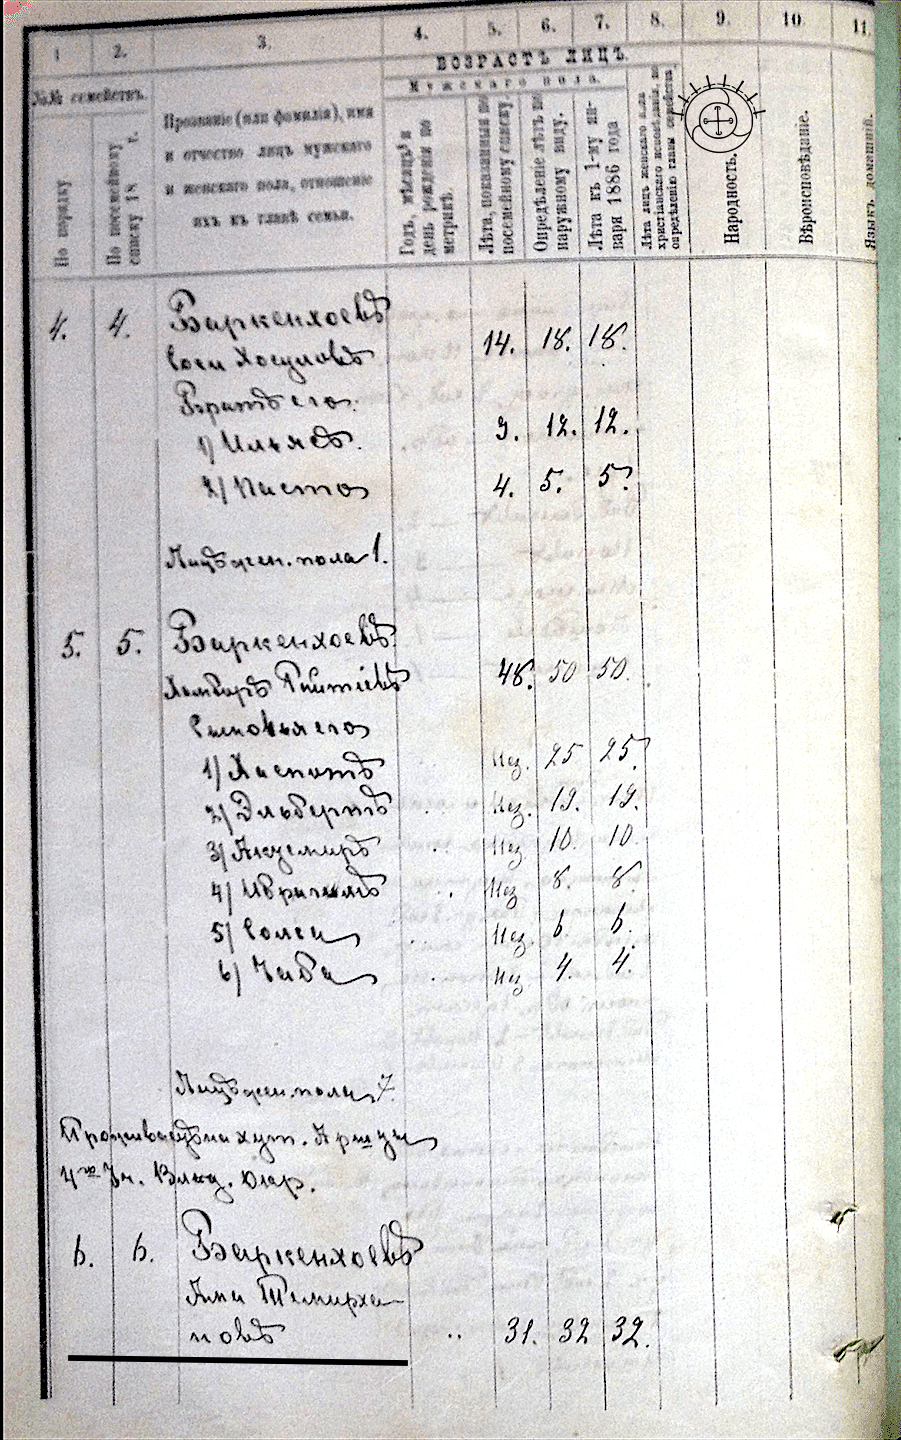 1 2. 3. 4. 5. 6. 7. 8. 9. 10. 11.
ВОЗРАСТЪ ЛИЦЪ.
Мужскаго пола.
№№ семействъ.
По порядку.
По посемейному
списку 18 г.
Прозваніе (или фамилія), имя
и отчество лицъ мужскаго
и женскаго пола, отношеніе
ихъ къ главѣ семьи.
Годъ, мѣсяцъ и
день рожденія по
метрикѣ.
Лѣта, показанныя по
посемейному списку.
Опредѣленіе лѣтъ по
наружному виду.
Лѣта къ 1-му ян-
варя 1886 года
Лѣта лицъ женскаго пола
христіанскаго исповѣданія, по
опредѣленію главы семейства.
Народность.
Вѣроисповѣданіе.
Языкъ домашній.
4. 4. Баркенхоевъ
Соси Хосуловъ 14. 18. 18.
Братъ его.
1) Ильясъ. 9. 12. 12.
2) Писто 4. 5. 5.
Лицъ жен. пола 1.
5. 5. Баркенхоевъ
Хамбордъ Гайтіевъ 48. 50 50.
Сыновья его
1) Хаспотъ Нез. 25 25.
2) Эльбертъ Нез. 19. 19.
3) Акземиръ Нез 10. 10.
4) Ибрагимъ Нез 8. 8.
5) Солса Нез. 6. 6.
6) Чаба Нез 4. 4.
Лицъ жен. пола 7.
Проживаетъ на хут. Аршты
4го Уч. Влад. Окр.
6. 6. Баркенхоевъ
Ама Темирха-
новъ 31. 32 32.